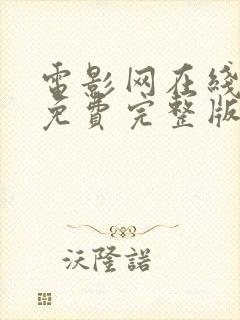 電影网在綫
免費完整版
沃隆諾